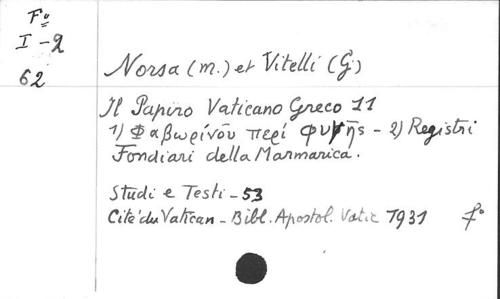 Fº
I-2
62
Norsa (M.) et Vitelli (G.)
Il Papiro Vaticano Greco 11
1) Φαβωρίνου περί φυγῆς - 2) Registri
Fondiari della Marmarica.
Studi e Testi - 53
Cité du Vatican - Bibl. Apostol. Vatic 1931 fº